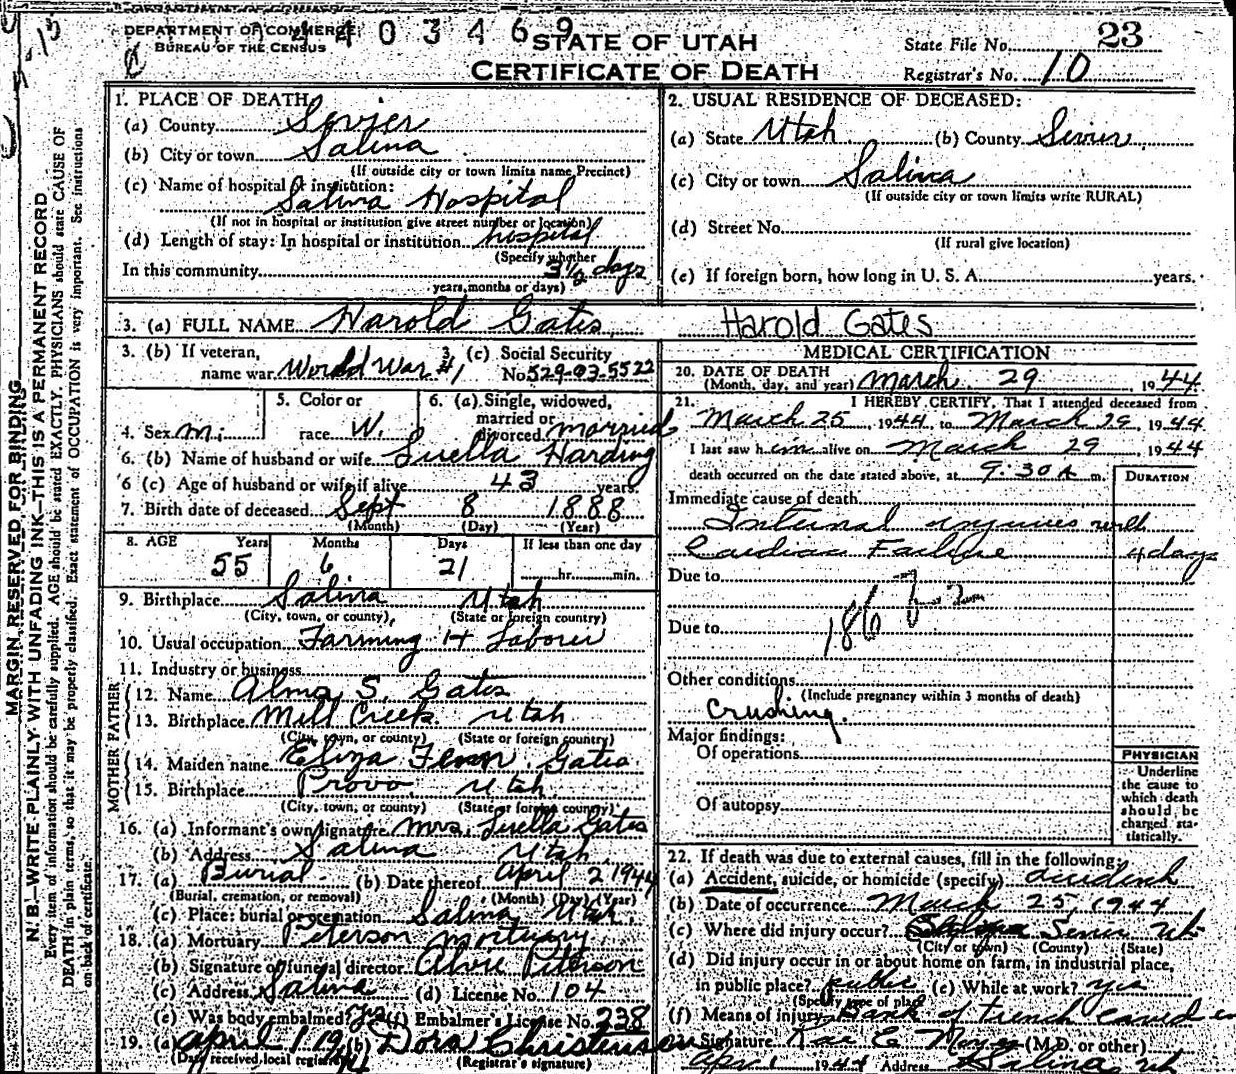 DEPARTMENT OF COMMERCE
BUREAU OF THE CENSUS
403469
STATE OF UTAH
CERTIFICATE OF DEATH
State File No. 23
Registrar's No. 10
MARGIN RESERVED FOR BINDING
N. B.—WRITE PLAINLY WITH UNFADING INK—THIS IS A PERMANENT RECORD
Every item of information should be carefully supplied. AGE should be stated EXACTLY. PHYSICIANS should state CAUSE OF
DEATH in plain terms, so that it may be properly classified. Exact statement of OCCUPATION is very important. See instructions
on back of certificate.
1. PLACE OF DEATH
(a) County Sevier
(b) City or town Salina
(If outside city or town limits name Precinct)
(c) Name of hospital or institution:
Salina Hospital
(If not in hospital or institution give street number or location)
(d) Length of stay: In hospital or institution hospital
(Specify whether
In this community 3 1/2 days
years, months or days)
2. USUAL RESIDENCE OF DECEASED:
(a) State Utah (b) County Sevier
(c) City or town Salina
(If outside city or town limits write RURAL)
(d) Street No.
(If rural give location)
(e) If foreign born, how long in U. S. A. years.
3. (a) FULL NAME Harold Gates Harold Gates
3. (b) If veteran, name war World War #1
3. (c) Social Security No. 529-03-5522
4. Sex m.
5. Color or race W.
6. (a) Single, widowed, married or divorced married
6. (b) Name of husband or wife Luella Harding
6 (c) Age of husband or wife if alive 43 years.
7. Birth date of deceased Sept 8 1888
(Month) (Day) (Year)
8. AGE Years Months Days If less than one day
55 6 21 hr. min.
9. Birthplace Salina Utah
(City, town, or county) (State or foreign country)
10. Usual occupation Farming & Laborer
11. Industry or business
FATHER
12. Name Alma S. Gates
13. Birthplace Mill Creek Utah
(City, town, or county) (State or foreign country)
MOTHER
14. Maiden name Eliza Gates
15. Birthplace Provo Utah
(City, town, or county) (State or foreign country)
16. (a) Informant's own signature Mrs. Luella Gates
(b) Address Salina Utah
17. (a) Burial (b) Date thereof April 2 1944
(Burial, cremation, or removal) (Month) (Day) (Year)
(c) Place: burial or cremation Salina Utah
18. (a) Mortuary Peterson Mortuary
(b) Signature of funeral director Peterson
(c) Address Salina (d) License No. 104
(e) Was body embalmed? Yes (f) Embalmer's License No. 238
19. (a) April 1 1944 (b) Dora Christenson
(Date received local registrar) (Registrar's signature)
MEDICAL CERTIFICATION
20. DATE OF DEATH
(Month, day, and year) March 29, 1944
21. I HEREBY CERTIFY, That I attended deceased from
March 25, 1944, to March 29, 1944
I last saw him alive on March 29, 1944
death occurred on the date stated above, at 9:30 A m.
DURATION
Immediate cause of death
Internal injuries with
Cardiac Failure 4 days
Due to
186
Due to
Other conditions
(Include pregnancy within 3 months of death)
Crushing.
Major findings:
Of operations
Of autopsy
PHYSICIAN
Underline
the cause to
which death
should be
charged sta-
tistically.
22. If death was due to external causes, fill in the following:
(a) Accident, suicide, or homicide (specify) accident
(b) Date of occurrence March 25, 1944
(c) Where did injury occur? Salina Sevier Ut
(City or town) (County) (State)
(d) Did injury occur in or about home on farm, in industrial place,
in public place? public (e) While at work? yes
(Specify type of place)
(f) Means of injury Bank of trench caved in
Signature Rae E. (M.D. or other)
Apr 1 1944 Address Salina, Ut